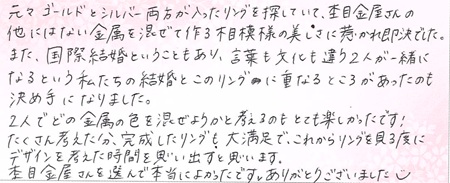 元々ゴールドとシルバー両方が入ったリングを探していて、杢目金屋さんの
他にはない金属を混ぜて作る木目模様の美しさに惹かれ即決でした。
また、国際結婚ということもあり、言葉も文化も違う2人が一緒に
なるという私たちの結婚とこのリングに重なるところがあったのも
決め手になりました。
2人でどの金属の色を混ぜようかと考えるのもとても楽しかったです!
たくさん考えた分、完成したリングも大満足で、これからリングを見る度に
デザインを考えた時間を思い出すと思います。
杢目金屋さんを選んで本当によかったです。ありがとうございました